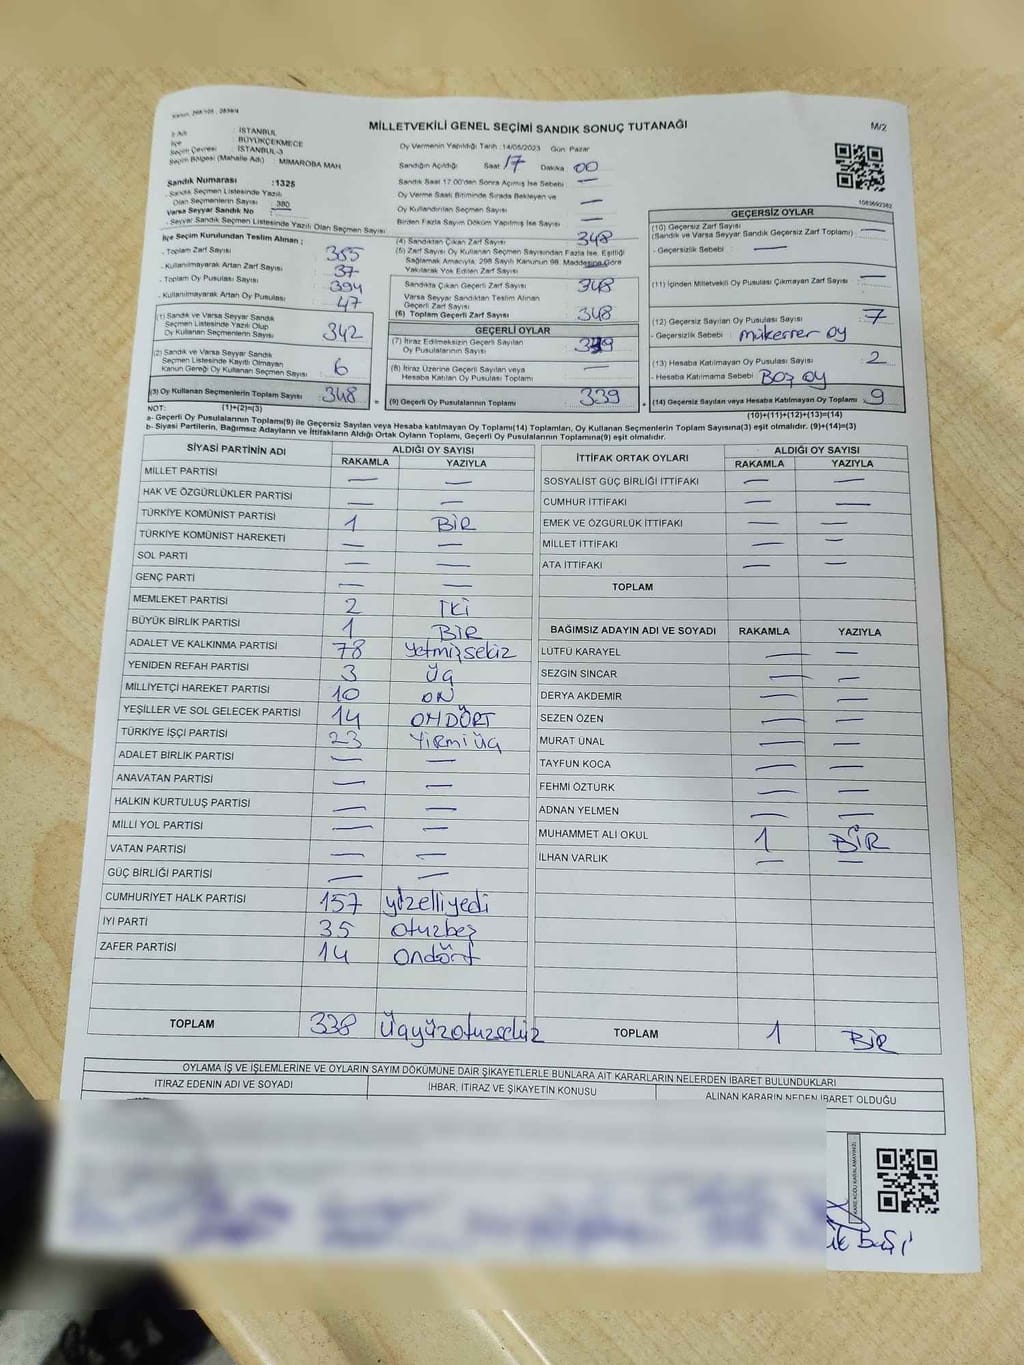 MİLLETVEKİLİ GENEL SEÇİMİ SANDIK SONUÇ TUTANAĞI
M/2
İl Adı : İSTANBUL
İlçe : BÜYÜKÇEKMECE
Seçim Çevresi : İSTANBUL-3
Seçim Bölgesi (Mahalle Adı) : MİMAROBA MAH.
Oy Vermenin Yapıldığı Tarih :14/05/2023 Gün: Pazar
Sandığın Açıldığı Saat 17 Dakika 00
Sandık Saat 17.00'den Sonra Açılmış İse Sebebi : —
Oy Verme Saati Bitiminde Sırada Bekleyen ve
Oy Kullandırılan Seçmen Sayısı : —
Birden Fazla Sayım Döküm Yapılmış İse Sayısı : —
Sandık Numarası :1325
- Sandık Seçmen Listesinde Yazılı
Olan Seçmenlerin Sayısı : 380
Varsa Seyyar Sandık No :
Seyyar Sandık Seçmen Listesinde Yazılı Olan Seçmen Sayısı
İlçe Seçim Kurulundan Teslim Alınan ;
- Toplam Zarf Sayısı : 385
- Kullanılmayarak Artan Zarf Sayısı : 37
- Toplam Oy Pusulası Sayısı : 394
- Kullanılmayarak Artan Oy Pusulası : 47
(1) Sandık ve Varsa Seyyar Sandık
Seçmen Listesinde Yazılı Olup
Oy Kullanan Seçmenlerin Sayısı : 342
(2) Sandık ve Varsa Seyyar Sandık
Seçmen Listesinde Kayıtlı Olmayan
Kanun Gereği Oy Kullanan Seçmen Sayısı : 6
(3) Oy Kullanan Seçmenlerin Toplam Sayısı : 348
(4) Sandıktan Çıkan Zarf Sayısı : 348
(5) Zarf Sayısı Oy Kullanan Seçmen Sayısından Fazla İse, Eşitliği
Sağlamak Amacıyla, 298 Sayılı Kanunun 98. Maddesine Göre
Yakılarak Yok Edilen Zarf Sayısı : —
Sandıkta Çıkan Geçerli Zarf Sayısı : 348
Varsa Seyyar Sandıktan Teslim Alınan
Geçerli Zarf Sayısı
(6) Toplam Geçerli Zarf Sayısı : 348
GEÇERLİ OYLAR
(7) İtiraz Edilmeksizin Geçerli Sayılan
Oy Pusulalarının Sayısı : 339
(8) İtiraz Üzerine Geçerli Sayılan veya
Hesaba Katılan Oy Pusulası Toplamı : —
(9) Geçerli Oy Pusulalarının Toplamı : 339
GEÇERSİZ OYLAR
(10) Geçersiz Zarf Sayısı
(Sandık ve Varsa Seyyar Sandık Geçersiz Zarf Toplamı) : —
- Geçersizlik Sebebi : —
(11) İçinden Milletvekili Oy Pusulası Çıkmayan Zarf Sayısı : —
(12) Geçersiz Sayılan Oy Pusulası Sayısı : 7
- Geçersizlik Sebebi : mükerrer oy
(13) Hesaba Katılmayan Oy Pusulası Sayısı : 2
- Hesaba Katılmama Sebebi : BOŞ OY
(14) Geçersiz Sayılan veya Hesaba Katılmayan Oy Toplamı : 9
NOT: (1)+(2)=(3)
(10)+(11)+(12)+(13)=(14)
a- Geçerli Oy Pusulalarının Toplamı(9) ile Geçersiz Sayılan veya Hesaba katılmayan Oy Toplamı(14) Toplamları, Oy Kullanan Seçmenlerin Toplam Sayısına(3) eşit olmalıdır. (9)+(14)=(3)
b- Siyasi Partilerin, Bağımsız Adayların ve İttifakların Aldığı Ortak Oyların Toplamı, Geçerli Oy Pusulalarının Toplamına(9) eşit olmalıdır.
SİYASİ PARTİNİN ADI ALDIĞI OY SAYISI
RAKAMLA YAZIYLA
MİLLET PARTİSİ — —
HAK VE ÖZGÜRLÜKLER PARTİSİ — —
TÜRKİYE KOMÜNİST PARTİSİ 1 BİR
TÜRKİYE KOMÜNİST HAREKETİ — —
SOL PARTİ — —
GENÇ PARTİ — —
MEMLEKET PARTİSİ 2 İKİ
BÜYÜK BİRLİK PARTİSİ 1 BİR
ADALET VE KALKINMA PARTİSİ 78 Yetmişsekiz
YENİDEN REFAH PARTİSİ 3 üç
MİLLİYETÇİ HAREKET PARTİSİ 10 ON
YEŞİLLER VE SOL GELECEK PARTİSİ 14 ONDÖRT
TÜRKİYE İŞÇİ PARTİSİ 23 Yirmi üç
ADALET BİRLİK PARTİSİ — —
ANAVATAN PARTİSİ — —
HALKIN KURTULUŞ PARTİSİ — —
MİLLİ YOL PARTİSİ — —
VATAN PARTİSİ — —
GÜÇ BİRLİĞİ PARTİSİ — —
CUMHURİYET HALK PARTİSİ 157 yüzelliyedi
İYİ PARTİ 35 otuzbeş
ZAFER PARTİSİ 14 ondört
TOPLAM 338 Üçyüzotuzsekiz
İTTİFAK ORTAK OYLARI ALDIĞI OY SAYISI
RAKAMLA YAZIYLA
SOSYALİST GÜÇ BİRLİĞİ İTTİFAKI — —
CUMHUR İTTİFAKI — —
EMEK VE ÖZGÜRLÜK İTTİFAKI — —
MİLLET İTTİFAKI — —
ATA İTTİFAKI — —
TOPLAM
BAĞIMSIZ ADAYIN ADI VE SOYADI RAKAMLA YAZIYLA
LÜTFÜ KARAYEL — —
SEZGİN SİNCAR — —
DERYA AKDEMİR — —
SEZEN ÖZEN — —
MURAT ÜNAL — —
TAYFUN KOCA — —
FEHMİ ÖZTÜRK — —
ADNAN YELMEN — —
MUHAMMET ALİ OKUL 1 BİR
İLHAN VARLIK — —
TOPLAM 1 BİR
OYLAMA İŞ VE İŞLEMLERİNE VE OYLARIN SAYIM DÖKÜMÜNE DAİR ŞİKAYETLERLE BUNLARA AİT KARARLARIN NELERDEN İBARET BULUNDUKLARI
İTİRAZ EDENİN ADI VE SOYADI İHBAR, İTİRAZ VE ŞİKAYETİN KONUSU ALINAN KARARIN NEDEN İBARET OLDUĞU